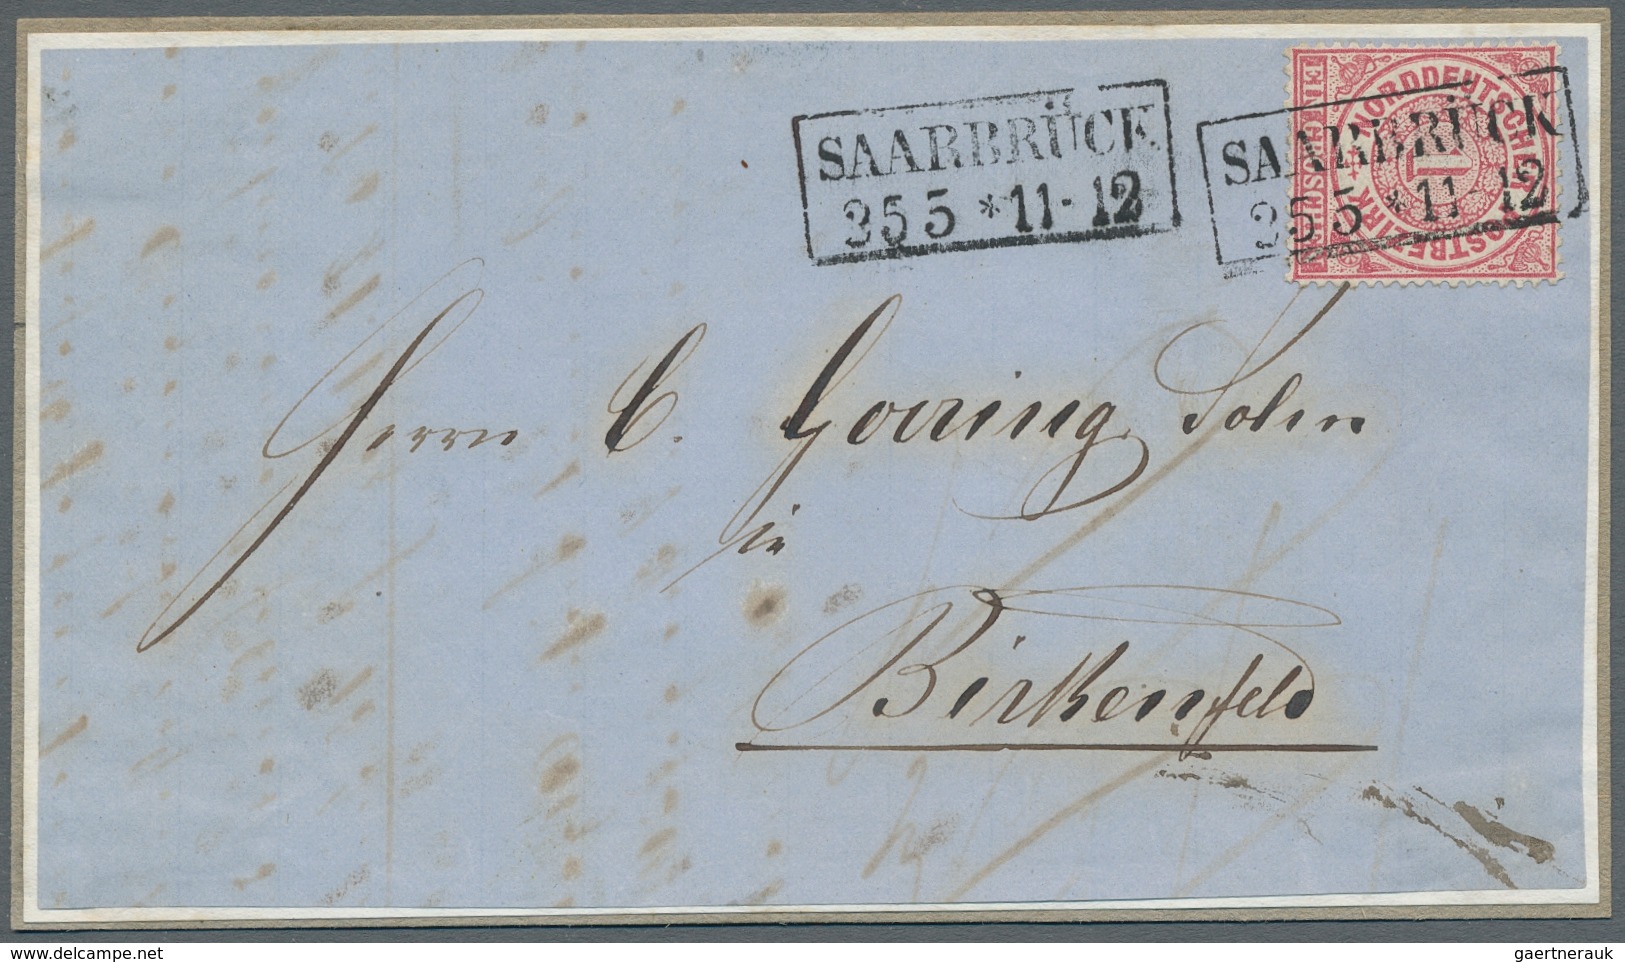 SAARBRÜCK
25 5 * 11-12
SAARBRÜCK
25 5 * 11-12
NORDDEUTSCHER POSTBEZIRK
1
EIN GROSCHEN
Herrn C. Goering Sohn
in
Birkenfeld
delcampe.net
gaertnerauk